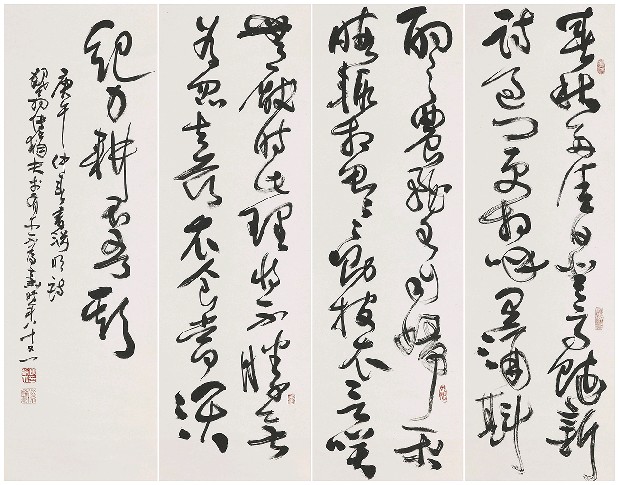 春秋多佳日登高賦新
詩過門更相呼有酒斟
酌之農務各自歸閑
暇輒相思〻〻則披衣言笑
無厭時此理將不勝無
為忽去茲衣食當須
紀力耕不吾欺
庚午仲春書淵明詩
時年八十又一